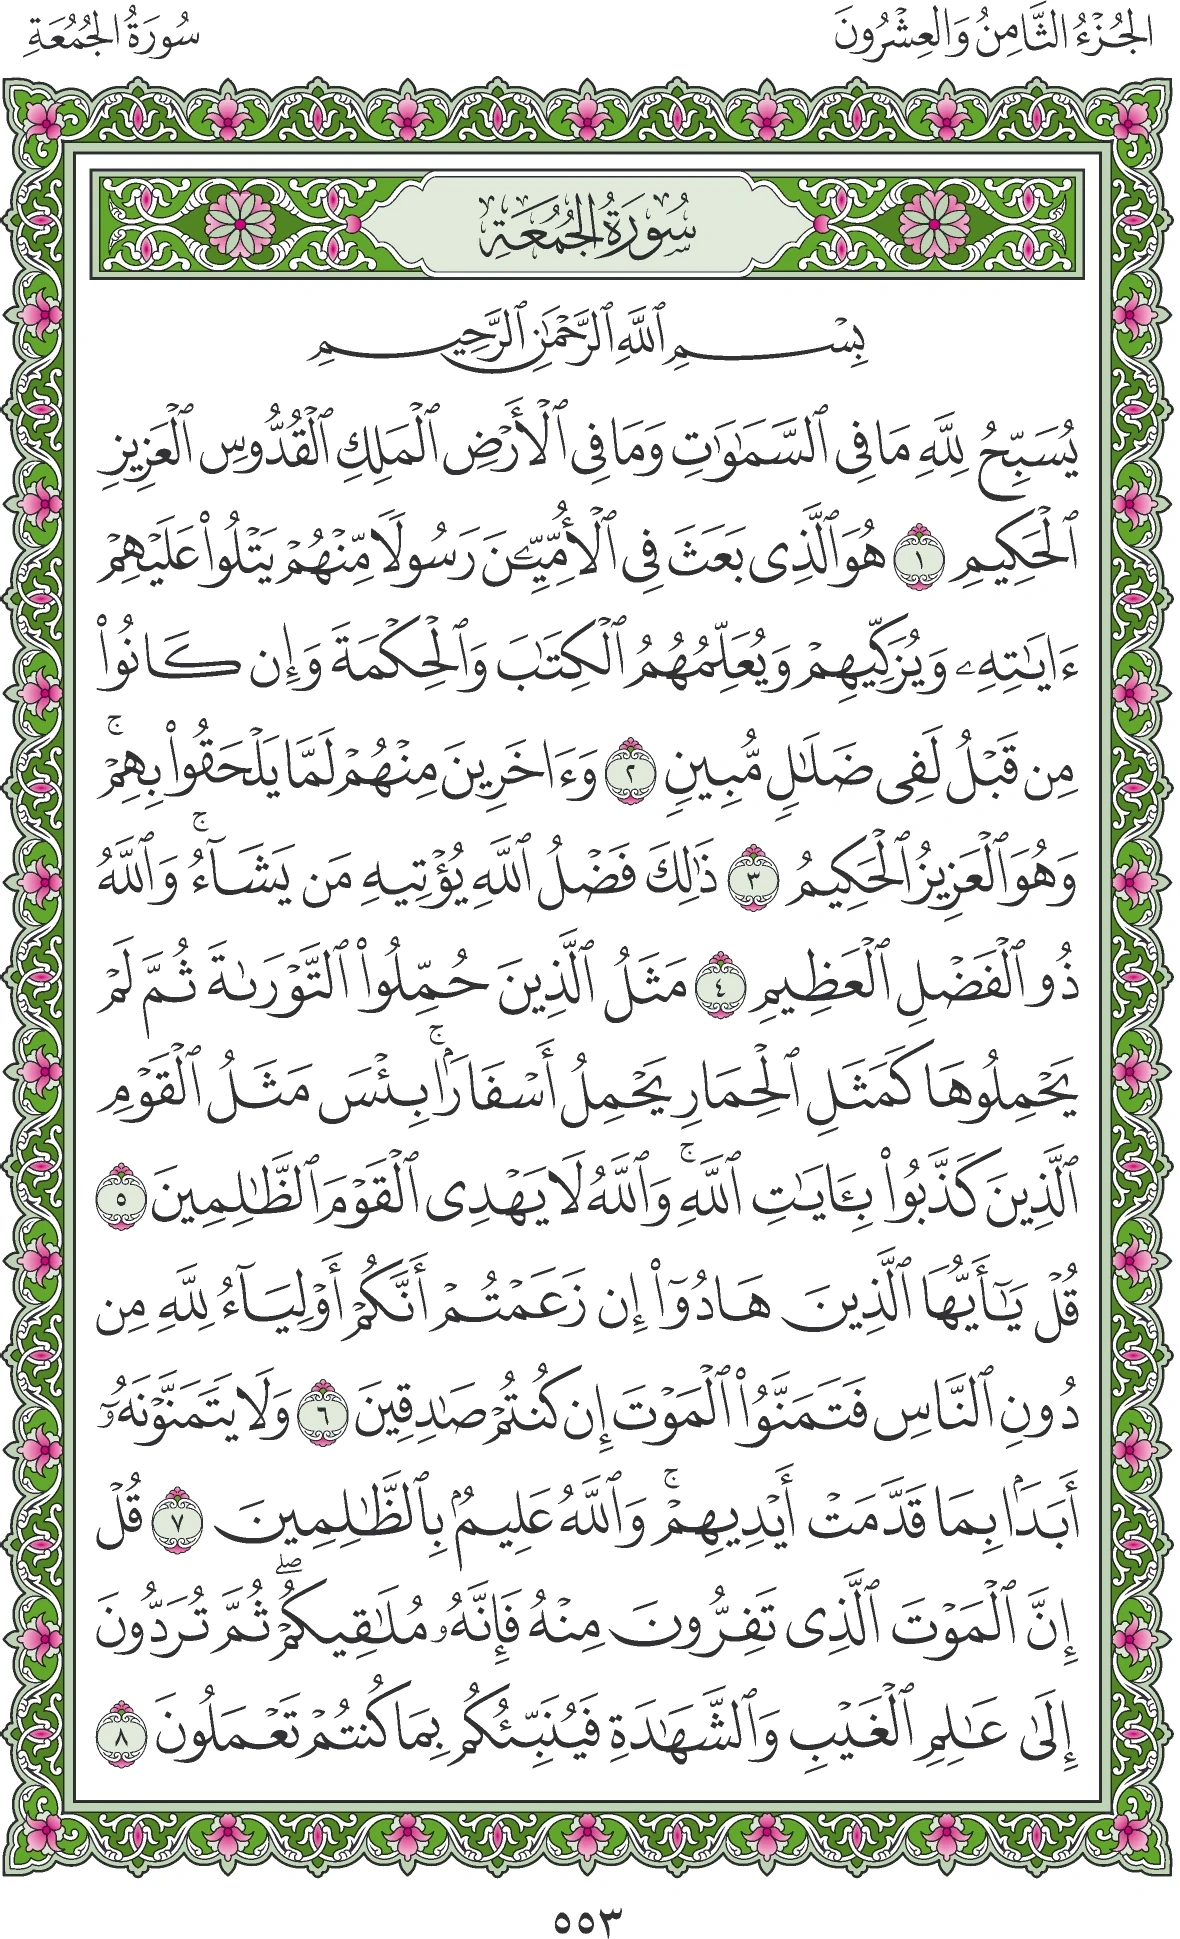 الجُزْءُ الثَّامِنُ وَالعِشْرُونَ
سُورَةُ الجُمُعَةِ
سُورَةُ الجُمُعَةِ
بِسْمِ ٱللَّهِ ٱلرَّحْمَٰنِ ٱلرَّحِيمِ
يُسَبِّحُ لِلَّهِ مَا فِي ٱلسَّمَٰوَٰتِ وَمَا فِي ٱلْأَرْضِ ٱلْمَلِكِ ٱلْقُدُّوسِ ٱلْعَزِيزِ
ٱلْحَكِيمِ ١ هُوَ ٱلَّذِي بَعَثَ فِي ٱلْأُمِّيِّـۧنَ رَسُولًا مِّنْهُمْ يَتْلُوا۟ عَلَيْهِمْ
ءَايَٰتِهِۦ وَيُزَكِّيهِمْ وَيُعَلِّمُهُمُ ٱلْكِتَٰبَ وَٱلْحِكْمَةَ وَإِن كَانُوا۟
مِن قَبْلُ لَفِي ضَلَٰلٍ مُّبِينٍ ٢ وَءَاخَرِينَ مِنْهُمْ لَمَّا يَلْحَقُوا۟ بِهِمْۚ
وَهُوَ ٱلْعَزِيزُ ٱلْحَكِيمُ ٣ ذَٰلِكَ فَضْلُ ٱللَّهِ يُؤْتِيهِ مَن يَشَآءُۚ وَٱللَّهُ
ذُو ٱلْفَضْلِ ٱلْعَظِيمِ ٤ مَثَلُ ٱلَّذِينَ حُمِّلُوا۟ ٱلتَّوْرَىٰةَ ثُمَّ لَمْ
يَحْمِلُوهَا كَمَثَلِ ٱلْحِمَارِ يَحْمِلُ أَسْفَارَۢاۚ بِئْسَ مَثَلُ ٱلْقَوْمِ
ٱلَّذِينَ كَذَّبُوا۟ بِـَٔايَٰتِ ٱللَّهِۚ وَٱللَّهُ لَا يَهْدِي ٱلْقَوْمَ ٱلظَّٰلِمِينَ ٥
قُلْ يَٰٓأَيُّهَا ٱلَّذِينَ هَادُوٓا۟ إِن زَعَمْتُمْ أَنَّكُمْ أَوْلِيَآءُ لِلَّهِ مِن
دُونِ ٱلنَّاسِ فَتَمَنَّوُا۟ ٱلْمَوْتَ إِن كُنتُمْ صَٰدِقِينَ ٦ وَلَا يَتَمَنَّوْنَهُۥٓ
أَبَدَۢا بِمَا قَدَّمَتْ أَيْدِيهِمْۚ وَٱللَّهُ عَلِيمُۢ بِٱلظَّٰلِمِينَ ٧ قُلْ
إِنَّ ٱلْمَوْتَ ٱلَّذِي تَفِرُّونَ مِنْهُ فَإِنَّهُۥ مُلَٰقِيكُمْۖ ثُمَّ تُرَدُّونَ
إِلَىٰ عَٰلِمِ ٱلْغَيْبِ وَٱلشَّهَٰدَةِ فَيُنَبِّئُكُم بِمَا كُنتُمْ تَعْمَلُونَ ٨
٥٥٣